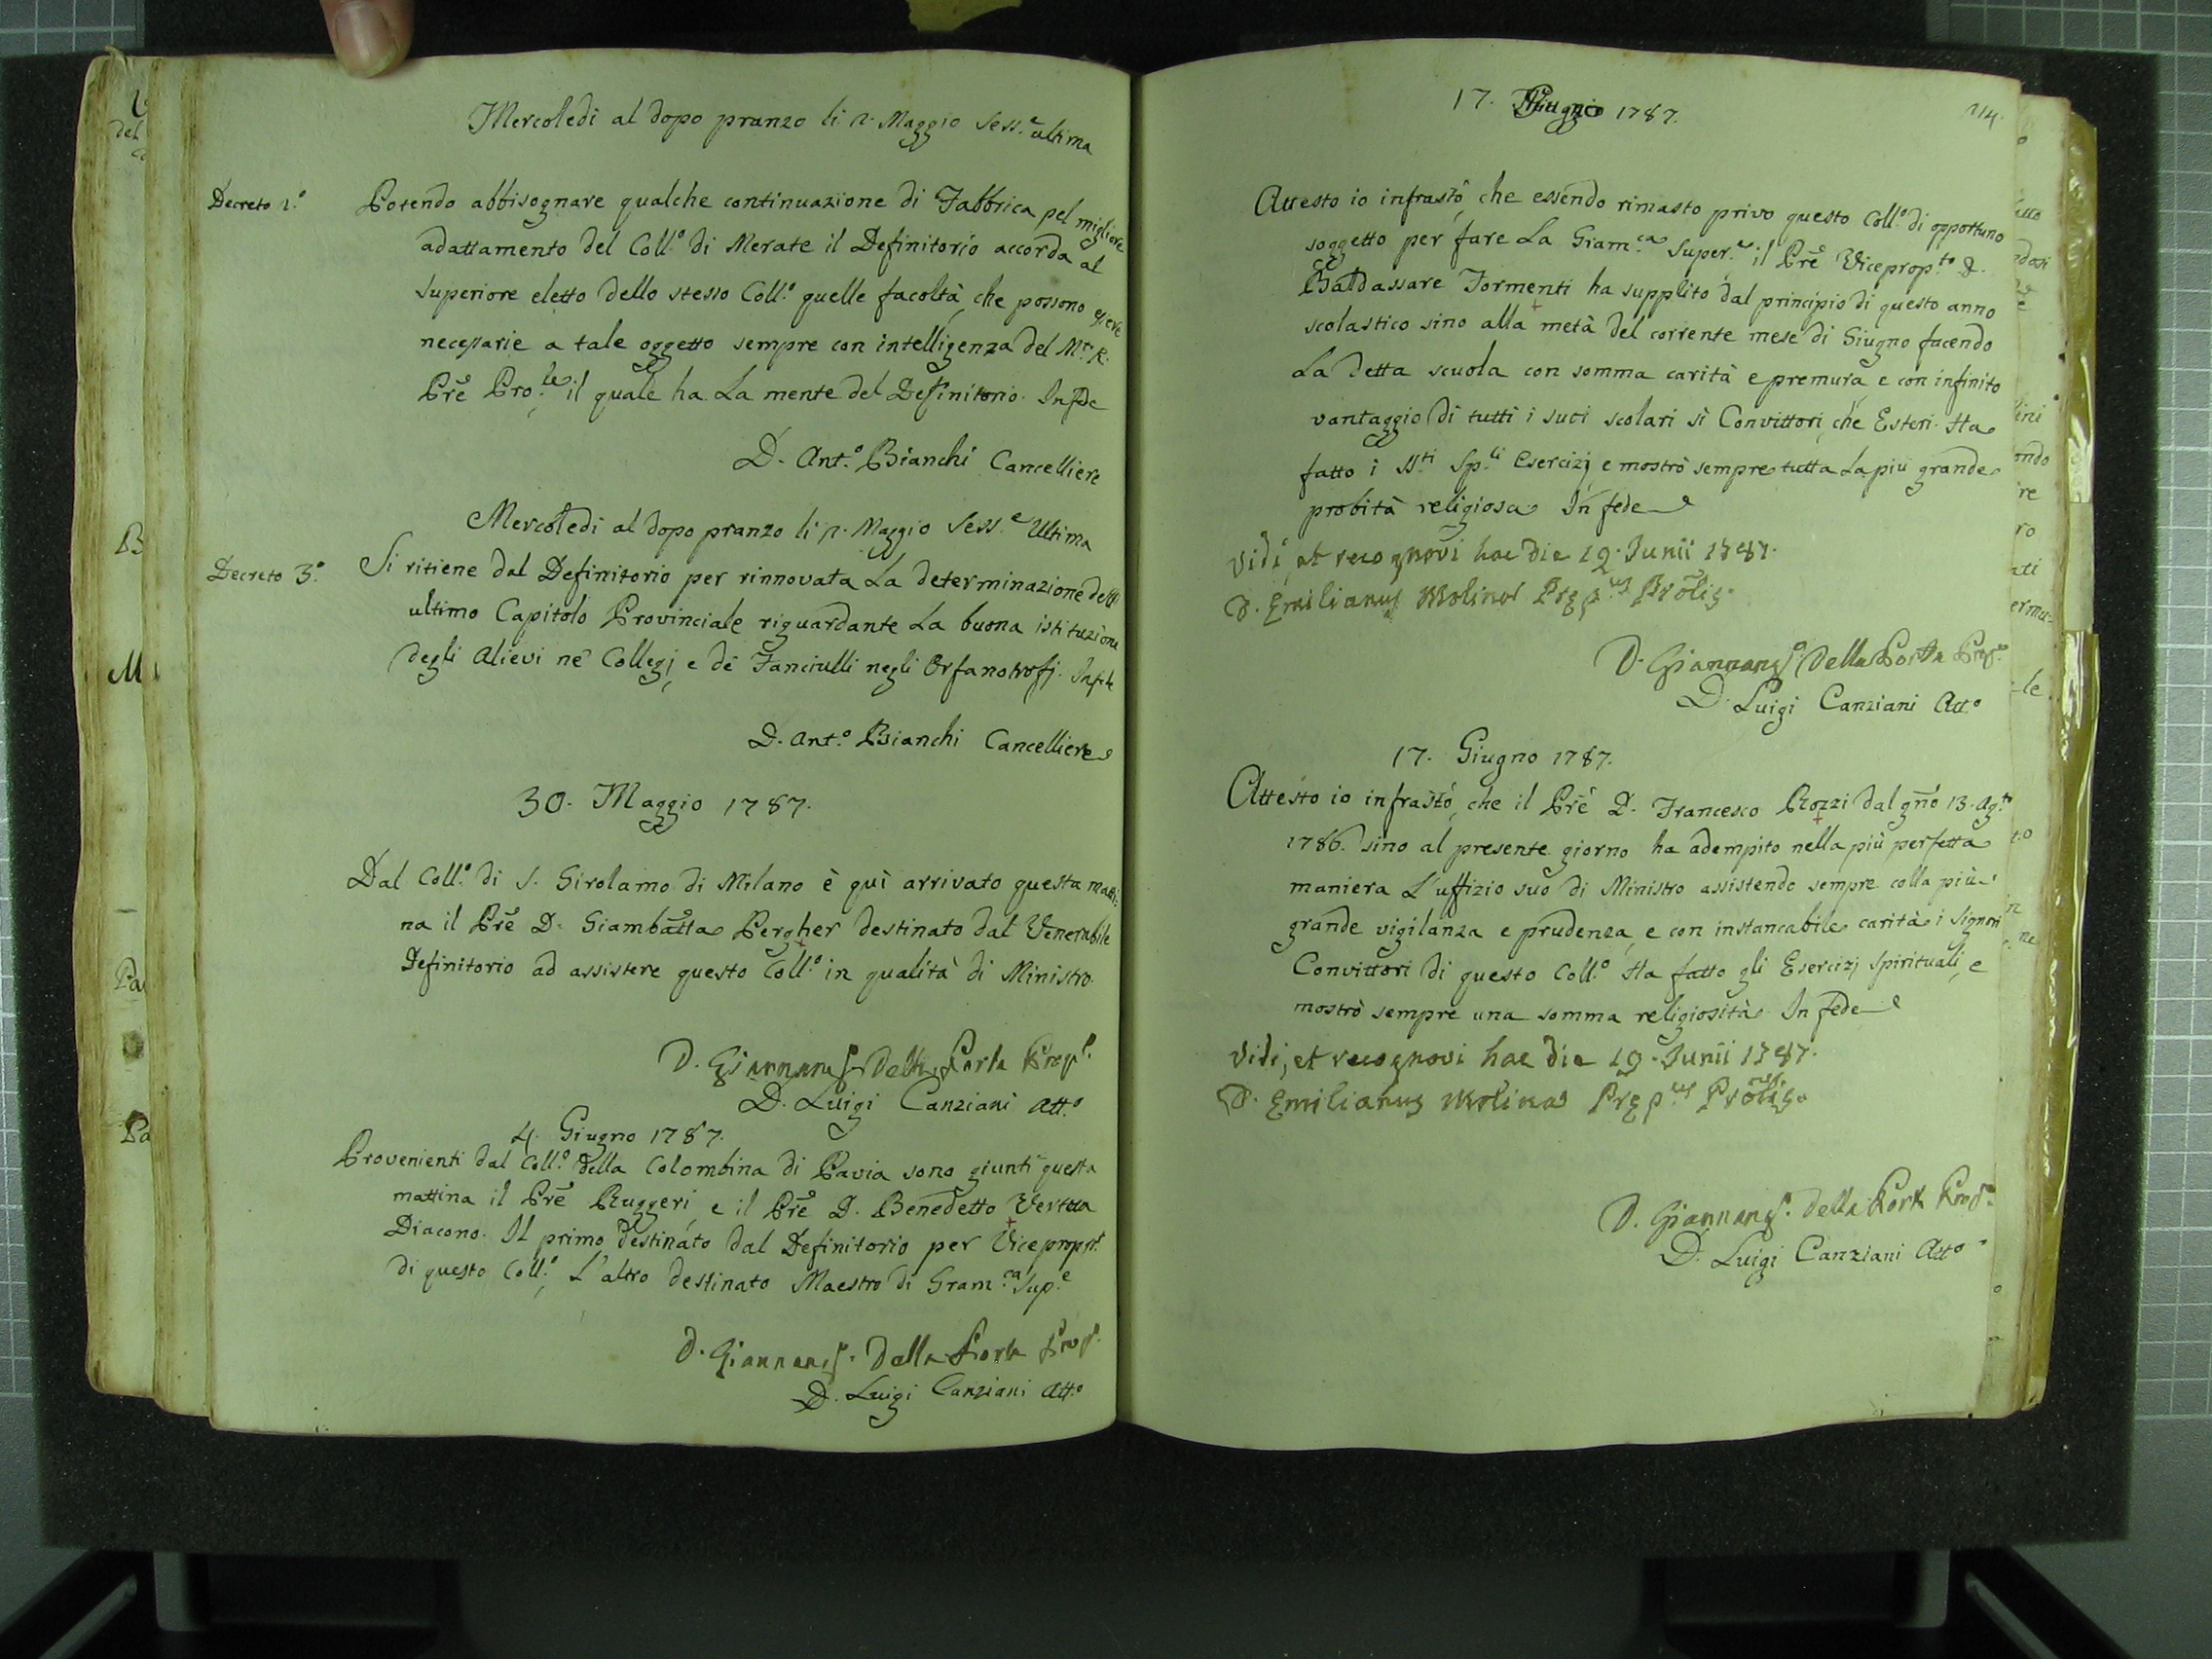 Mercoledi al dopo pranzo li 2. Maggio Sess.e ultima
Decreto 2.o Potendo abbisognare qualche continuazione di Fabbrica pel migliore
adattamento del Coll.o di Merate il Definitorio accorda al
Superiore eletto dello stesso Coll.o quelle facoltà, che possono essere
necessarie a tale oggetto sempre con intelligenza del M.to R.
Prē Pro.le, il quale ha la mente del Definitorio. In fede
D. Ant.o Bianchi Cancelliere
Mercoledi al dopo pranzo li 2. Maggio Sess.e Ultima
Decreto 3.o Si ritiene dal Definitorio per rinnovata la determinazione dell'
ultimo Capitolo Provinciale riguardante la buona istituzione
degli Alievi ne' Collegj, e de' Fanciulli negli Orfanotrofj. In fede
D. Ant.o Bianchi Cancelliere
30. Maggio 1787.
Dal Coll.o di S. Girolamo di Milano è quì arrivato questa matti-
na il Prē D. Giambatta Pergher destinato dal Venerabile
Definitorio ad assistere questo Coll.o in qualità di Ministro.
D. Giannang.o Della Porta Prep.o
D. Luigi Canziani Att.o
4. Giugno 1787.
Provenienti dal Coll.o della Colombina di Pavia sono giunti questa
mattina il Prē Ruggeri, e il Prē D. Benedetto Vertua
Diacono. Il primo destinato dal Definitorio per Viceprop.to
di questo Coll.o, L'altro destinato Maestro di Gram.ca Sup.e
D. Giannang.o Della Porta Prep.o
D. Luigi Canziani Att.o
17. Giugno 1787.
214.
Attesto io infrastō, che essendo rimasto privo questo Coll.o di opportuno
soggetto per fare la Gram.ca Super.e, il Prē Viceprop.to D.
Baldassare Formenti ha supplito dal principio di questo anno
scolastico sino alla metà del corrente mese di Giugno facendo
la detta scuola con somma carità e premura, e con infinito
vantaggio di tutti i suoi scolari sì Convittori, che Esteri. Ha
fatto i SS.ti Sp.li Esercizj, e mostrò sempre tutta la più grande
probità religiosa. In fede
Vidi, et recognovi hac die 19. Junii 1787.
D. Emilianus Molina Prep.us Prōlis.
D. Giannang.o Della Porta Prep.o
D. Luigi Canziani Att.o
17. Giugno 1787.
Attesto io infrastō, che il Prē D. Francesco Rozzi dal gno 13. Ag.to
1786. sino al presente giorno ha adempito nella più perfetta
maniera l'uffizio suo di Ministro assistendo sempre colla più
grande vigilanza e prudenza, e con instancabile carità i Signori
Convittori di questo Coll.o Ha fatto gli Esercizj Spirituali, e
mostrò sempre una somma religiosità. In fede
Vidi, et recognovi hac die 19. Junii 1787.
D. Emilianus Molina Prep.us Prōlis.
D. Giannang.o Della Porta Prep.o
D. Luigi Canziani Att.o